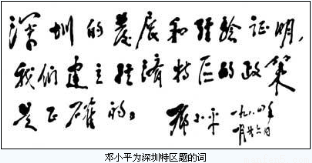 深圳的发展和经验证明,
我们建立经济特区的政策
是正确的。
邓小平 一九八四年
一月廿六日
邓小平为深圳特区题的词